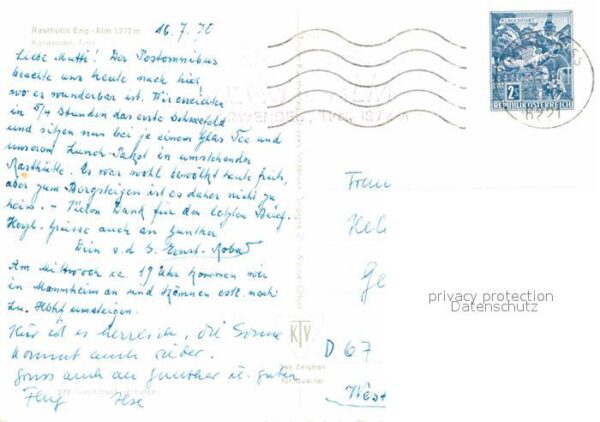 Rasthütte Eng-Alm 1272 m
Karwendel, Tirol
16.7.70
Liebe Mutti! Der Postomnibus
brachte uns heute nach hier,
wo es wunderbar ist. Wir erreichten
in 5/4 Stunden das erste Schneefeld
und sitzen nun bei je einem Glas Tee und
unserem Lunch-Paket in umstehender
Rasthütte. Es war wohl bewölkt heute früh,
aber zum Bergsteigen ist es daher nicht zu
heiss. - Vielen Dank für den letzten Brief.
Herzl. Grüsse auch an Gunther
Dein Ernst-Robert
Am Mittwoch ca 19 Uhr kommen wir
in Mannheim an und können evtl. noch
Lu. Hbhf umsteigen.
Hier ist es herrlich, die Sonne
kommt auch wieder.
Gruss auch an Gunther u. guten
Flug Ilse
KLAGENFURT
2 S
REPUBLIK ÖSTERREICH
6221
KARWENDEL, Tirol, 1272 m
Frau
Hel
Ge
D 67
West
privacy protection
Datenschutz
KTV
Das Zeichen
für Qualität